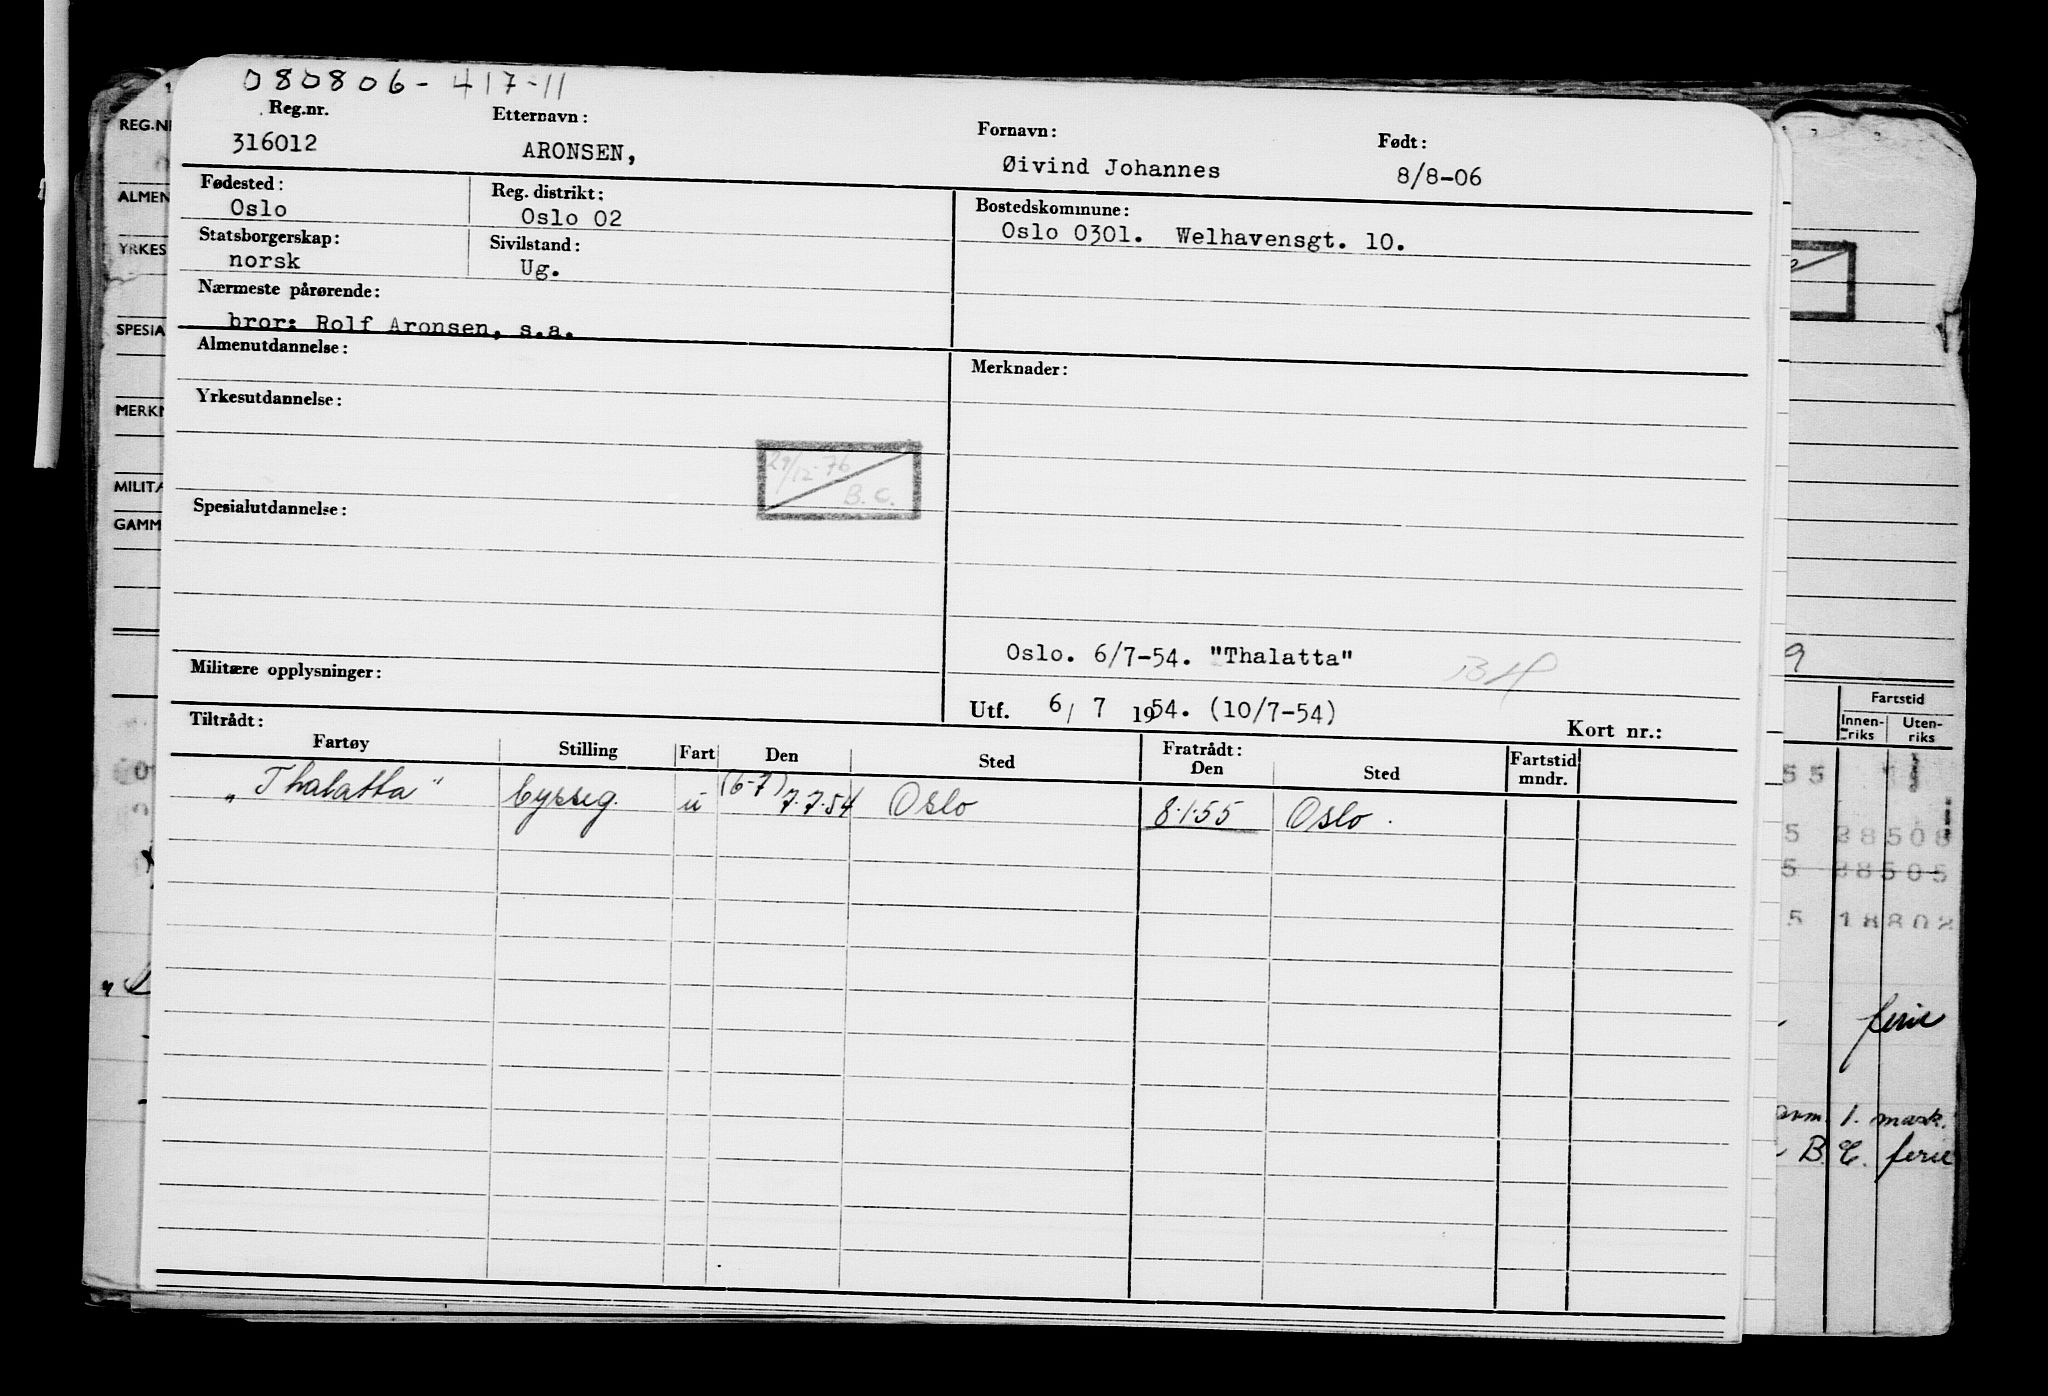 080806-417-11
Reg.nr. Etternavn: Fornavn: Født:
316012 ARONSEN, Øivind Johannes 8/8-06
Fødested: Reg. distrikt: Bostedskommune:
Oslo Oslo 02 Oslo 0301. Welhavensgt. 10.
Statsborgerskap: Sivilstand:
norsk Ug.
Nærmeste pårørende:
bror: Rolf Aronsen, s.a.
Almenutdannelse: Merknader:
Yrkesutdannelse:
29/12-76
B.C.
Spesialutdannelse:
Oslo. 6/7-54. "Thalatta"
Militære opplysninger:
Utf. 6/ 7 1954. (10/7-54) Kort nr.:
Tiltrådt: Fratrådt:
Fartøy Stilling Fart Den Sted Den Sted Fartstid mndr.
„Thalatta" bysseg. u (6-7) 7.7.54 Oslo 8.1.55 Oslo.
REG.N
ALMEN
YRKES
SPESIA
MERK
MILITA
GAMM
9
Fartstid
Innen-riks Uten-riks
55
5 38508
5 28505
5 18802
ferie
1. mask.
B. C. ferie